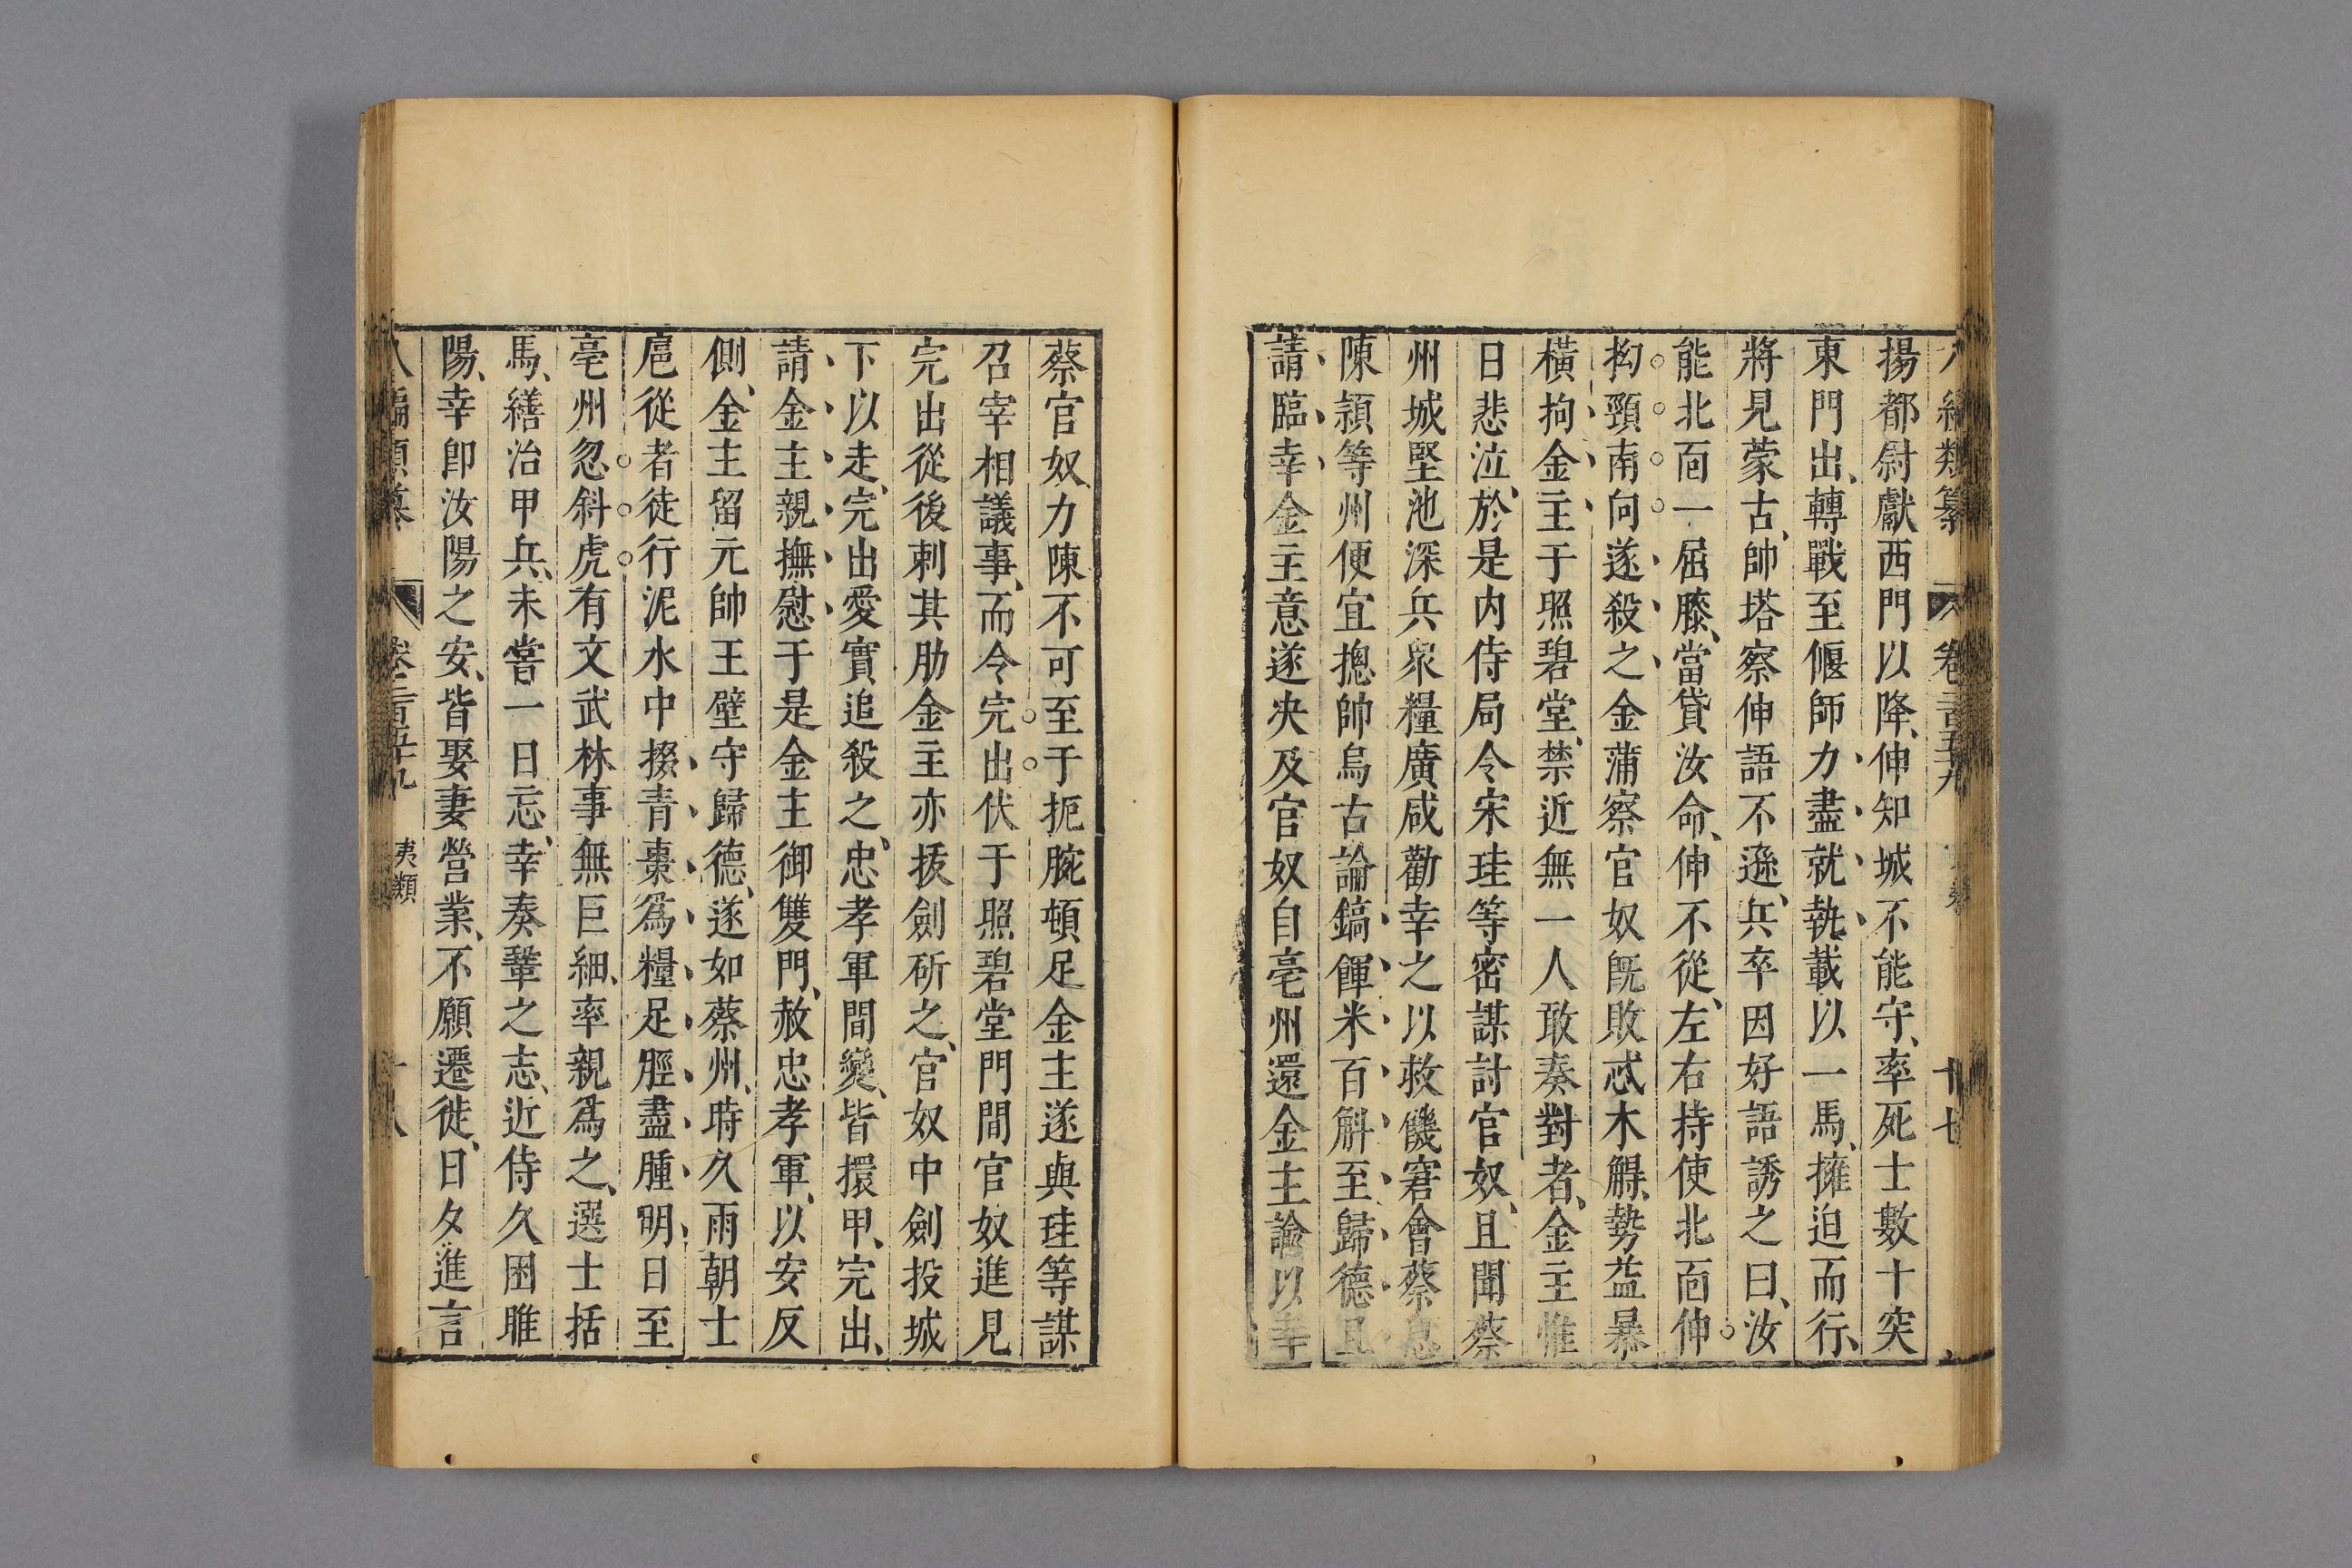 八編類纂 卷二百五十九 十七
揚都尉獻西門以降、伸知城不能守、率死士數十突
東門出、轉戰至偃師力盡就執載以一馬、擁迫而行、
將見蒙古帥塔察伸語不遜、兵卒因好語誘之曰、汝
能北面一屈膝、當貸汝命、伸不從、左右持使北面伸
拗頸南向遂殺之金蒲察官奴旣敗忒木䚟、勢益暴
橫拘金主于照碧堂、禁近無一人敢奏對者、金主惟
日悲泣、於是内侍局令宋珪等密謀討官奴、且聞蔡
州城堅池深兵衆糧廣咸勸幸之以救饑窘會蔡息
陳頴等州便宜摠帥烏古論鎬餫米百斛至歸德且
請臨幸金主意遂决及官奴自亳州還金主諭以幸
蔡官奴、力陳不可至于扼腕頓足金主遂與珪等謀
召宰相議事、而令完出伏于照碧堂門間官奴進見
完出從後刺其肋金主亦拔劍斫之、官奴中劍投城
下以走、完出愛實追殺之、忠孝軍聞變、皆擐甲、完出、
請金主親撫慰于是金主御雙門、赦忠孝軍、以安反
側、金主留元帥王壁守歸德、遂如蔡州、時久雨朝士
扈從者徒行泥水中掇青棗爲糧足脛盡腫、明日至
亳州忽斜虎有文武林事無巨細、率親爲之、選士括
馬、繕治甲兵、未嘗一日忘、幸奏鞏之志、近侍久困睢
陽、幸卽汝陽之安、皆娶妻營業、不願遷徙、日夕進言
八編類纂 卷二百五十九 夷類 十八